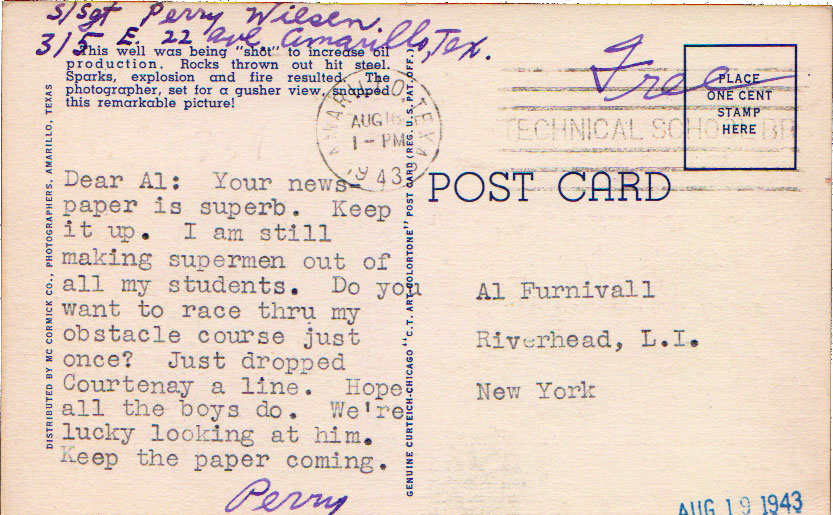 S/Sgt Perry Wilsen
315 E. 22 ave, Amarillo, Tex.
This well was being "shot" to increase oil
production. Rocks thrown out hit steel.
Sparks, explosion and fire resulted. The
photographer, set for a gusher view, snapped
this remarkable picture!
Free
PLACE
ONE CENT
STAMP
HERE
AMARILLO, TEXAS
AUG 16
1 - PM
1943
TECHNICAL SCHOOL BR
POST CARD
Dear Al: Your news-
paper is superb. Keep
it up. I am still
making supermen out of
all my students. Do you
want to race thru my
obstacle course just
once? Just dropped
Courtenay a line. Hope
all the boys do. We're
lucky looking at him.
Keep the paper coming.
Perry
Al Furnivall
Riverhead, L.I.
New York
AUG 19 1943
DISTRIBUTED BY MC CORMICK CO., PHOTOGRAPHERS, AMARILLO, TEXAS
GENUINE CURTEICH-CHICAGO "C.T. ART-COLORTONE" POST CARD (REG. U.S. PAT. OFF.)